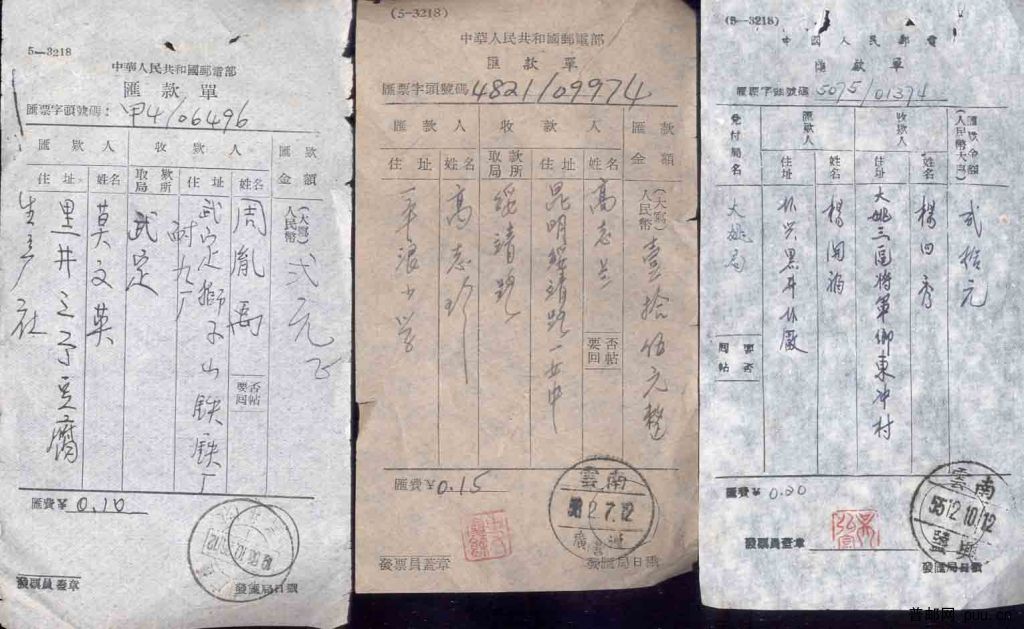 5—3218
中華人民共和國郵電部
匯款單
匯票字頭號碼：甲4/06496
匯款人 收款人 匯款金額
住址 姓名 取款局所 住址 姓名
（大寫）人民幣 弍元正
周胤禹
要否回帖
武定獅子山鉄鉄厂
耐九厂
武定
莫文英
黑井立予豆腐
生产社
匯費¥0.10
發票員蓋章 發匯局日戳
(5—3218)
中華人民共和國郵電部
匯款單
匯票字頭號碼 4821/09974
匯款人 收款人 匯款金額
住址 姓名 取款局所 住址 姓名
（大寫）人民幣 壹拾伍元整
高志兰
要否回帖
昆明綏靖路一女中
綏靖路
高志珍
一平浪小学
匯費¥0.15
雲南
2.7.12
廣
發票員蓋章 發匯局日戳
(5—3218)
中國人民郵電
匯款單
匯票字頭號碼 5075/01374
匯款金額（人民幣大寫） 收款人 匯款人 兌付局名
姓名 住址 姓名 住址
弍拾元
楊田秀
大姚三區將軍鄉東冲村
楊開福
黑井
大姚局
要否回帖
匯費¥0.20
雲南
5512.10.12
鹽興
發票員蓋章 發匯局日戳
普邮网 puu.cn